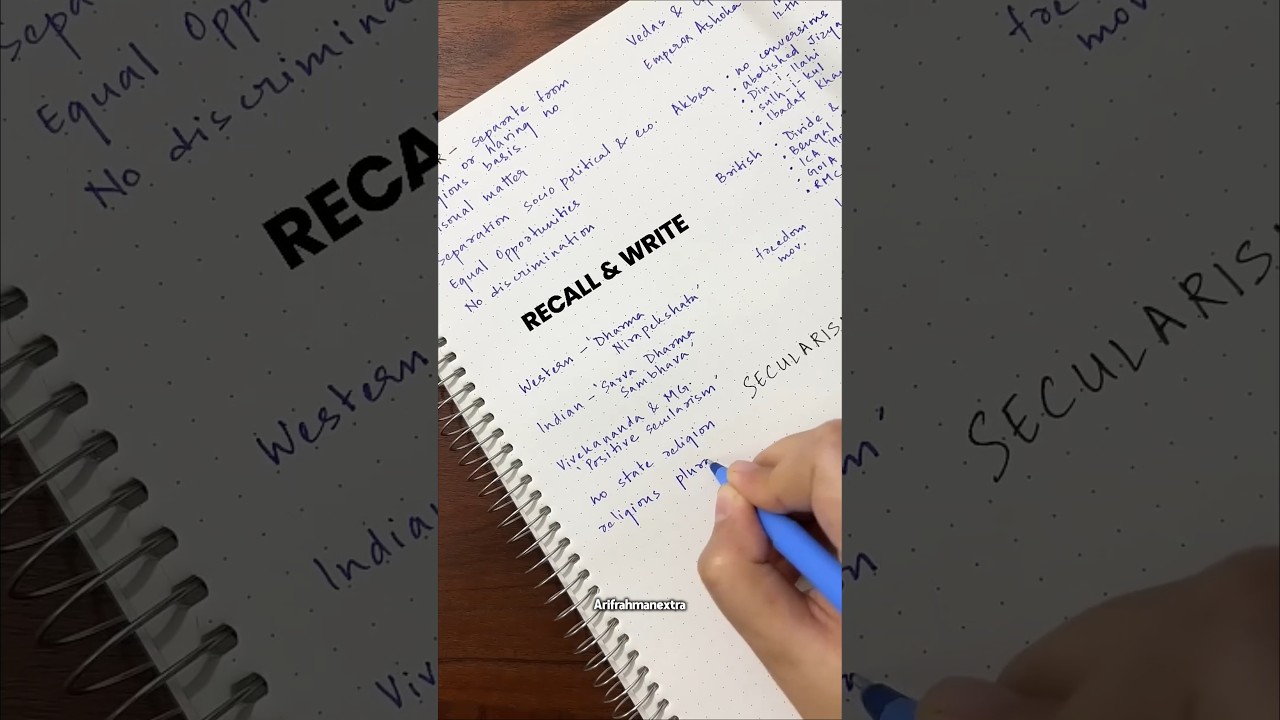 Vedas &
Emperor Ashoka
12th
R- separate from
or having no
gious basis.
sonal matter
separation socio political & eco.
Equal Opportunities
No discrimination
Akbar
• no conversions
• abolished Jizya
• Din-i-ilahi
• sulh-i-kul
• Ibadat Kha
British
• Divide &
• Bengal
• ICA 190
• GOIA
• RMC
freedom
mov.
RECALL & WRITE
Western - 'Dharma
Nirapekshata'
Indian - 'Sarva Dharma
Sambhava'
Vivekananda & MG-
'Positive secularism'
no state religion
religious plura
SECULARIS
Arifrahmanextra
Sepa
Equal Oppo
No discrimina
RECA
Western
Indian
Viv
fre
mov.
SECULARIS